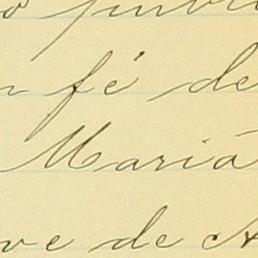 fé de
Mariá
ve de A